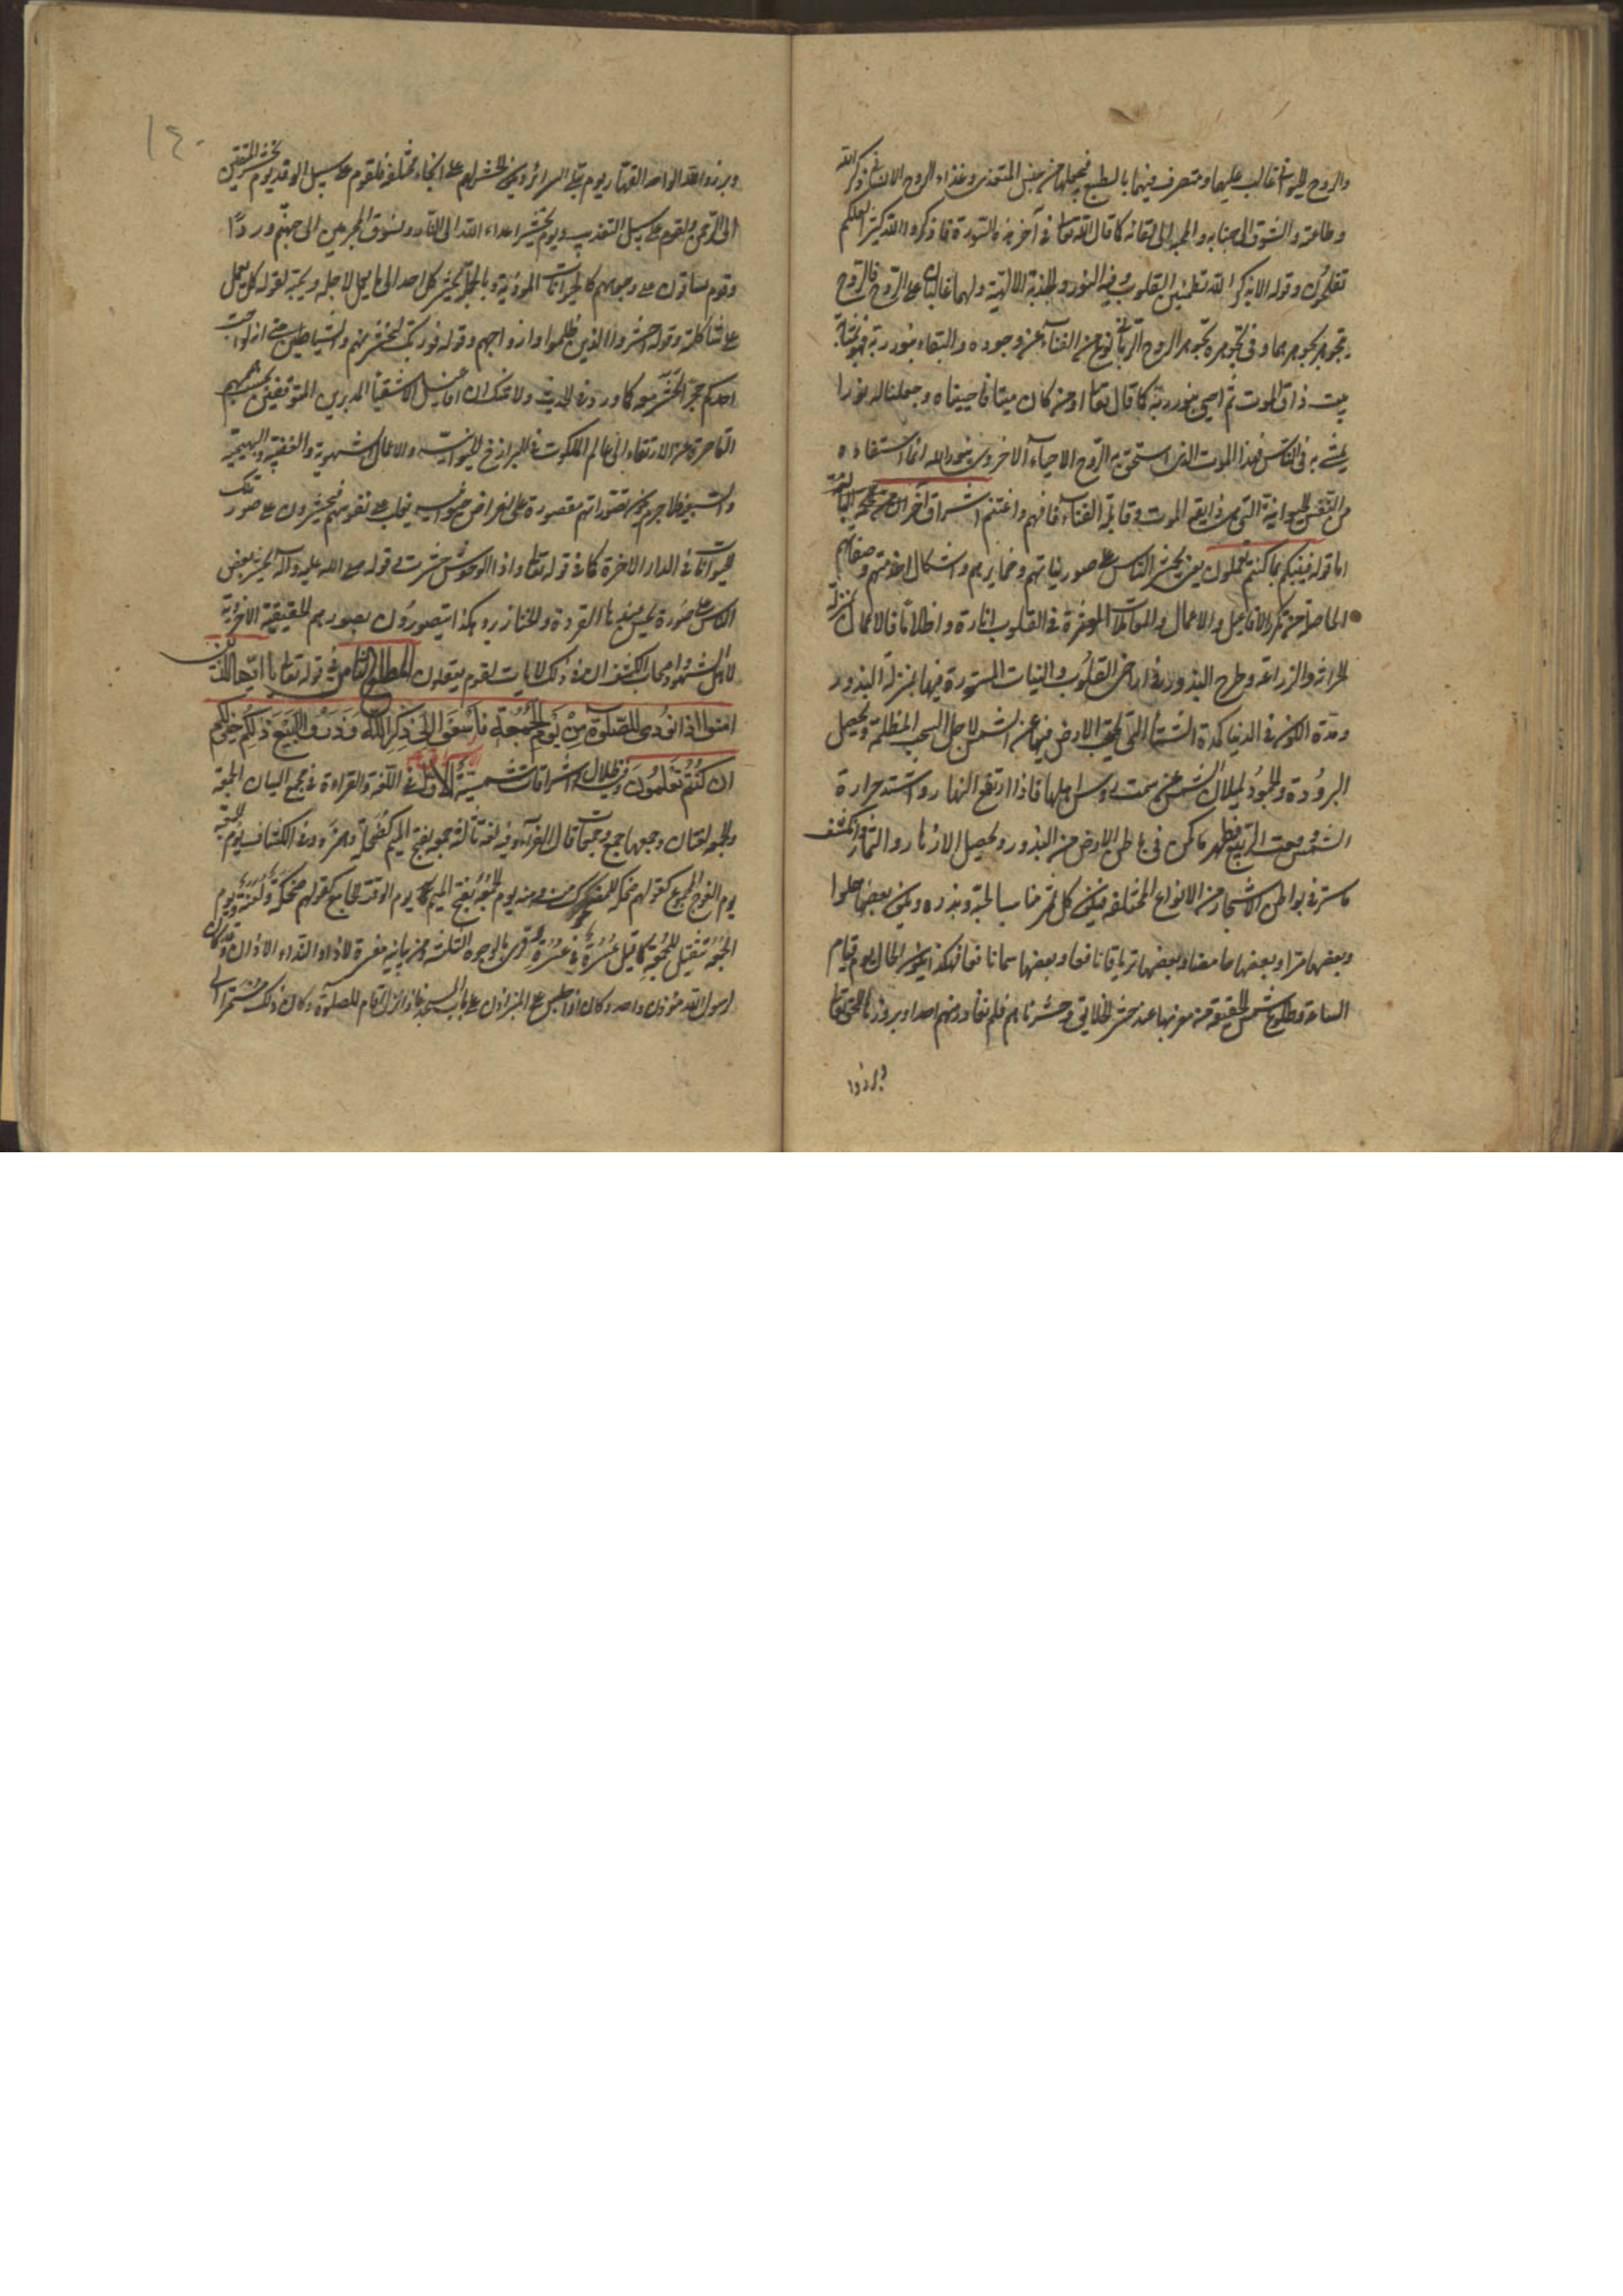 والروح الحيواني غالب عليها ومتصرف فيهما بالطبع فيجعلها من جنس المتغذي وغذاء الروح الانساني ذكر الله
وطاعته والشوق الى جنابه والمحبة الى لقائه كما قال الله تعالى في آخر هذه السورة فاذكروا الله كثيرا لعلكم
تفلحون وقوله الا بذكر الله تطمئن القلوب وفيه النور والجذبة الالهية ولهما غالبان على الروح فالروح
يتجوهر بجوهرهما وفي تجوهره بجوهر الروح الرباني نوع من الفناء عن وجوده والبقاء بنور ربه فهو بمثابة
ميت ذاق الموت ثم احيي بنور ربه كما قال تعالى او من كان ميتا فاحييناه وجعلنا له نورا
يمشي به في الناس فهذا الموت الذي استحق به الروح الاحياء الاخروي بنور الله انما استفاده
من النفس الحيوانية التي هي ذائقة الموت وقابلة الفناء فافهم واغتنم اشراق آخر
اما قوله فينبئكم بما كنتم تعملون يعني يحشر الناس على صور نياتهم وضمايرهم واشكال وصفاتهم
الحاصلة من تكرر الافاعيل والاعمال والمقالات المؤثرة في القلوب انارة واظلاما فالاعمال بمنزلة
الحراثة والزراعة وطرح البذور في اراضي القلوب والنيات المستورة فيها بمنزلة البذور
ومدة الكون في الدنيا كمدة الشتاء التي يحتجب الارض فيها عن الشمس لاجل السحب المظلمة ويحصل
البرودة والجمود لميلان الشمس عن سمت رؤس اهلها فاذا ارتفع النهار واشتد حرارة
الشمس وقت الربيع فظهر ما كمن في باطن الارض من البذور ويحصل الازهار والثمار وانكشف
ما ستر في بواطن الاشجار من الانواع المختلفة فيكون كل ثمر مناسبا لحبه وبذره ويكون بعضها حلوا
وبعضها مرا وبعضها حامضا وبعضها ترياقا نافعا وبعضها سما ناقعا فهكذا يكون الحال يوم قيام
الساعة وطلوع شمس الحقيقة من مغربها عند حشر الخلايق وحشرناهم فلم نغادر منهم احدا وبروزها للحق تعالى
وبرزوا
١٤٠
وبرزوا لله الواحد القهار يوم تبلى السرائر ويكون الحشر لهم على انحاء مختلفة فلقوم على سبيل الوفد يوم نحشر المتقين
الى الرحمن ولقوم على سبيل التعذيب ويوم يحشر اعداء الله الى النار ونسوق المجرمين الى جهنم وردا
وقوم يساقون على وجوههم كالحيوانات الموذية وبالجملة يحشر كل احد الى ما يعمل لاجله ويحبه لقوله كل يعمل
على شاكلته وقوله احشروا الذين ظلموا وازواجهم وقوله فوربك لنحشرنهم والشياطين حتى انه لو احب
احدكم حجرا لحشر معه كما ورد في الحديث ولا شك ان افاعيل الاشقياء المدبرين المتوقفين بحسب هممهم
القاصرة عن الارتقاء الى عالم الملكوت في البرازخ الحيوانية والاعمال الشهوية والغضبية والبهيمية
والسبعية فلا جرم يكون تصوراتهم مقصورة على اغراض حيوانية يغلب على نفوسهم فيحشرون على صور تلك
الحيوانات في الدار الاخرة كما في قوله تعالى واذا الوحوش حشرت وفي قوله صلى الله عليه وآله يحشر بعض
الناس على صورة يحسن عندها القردة والخنازير وهكذا يتصورون بصورهم الحقيقية الاخروية
لاهل الشهود واصحاب الكشف ان في ذلك لايات لقوم يعقلون المطلع الثامن في قوله تعالى يا ايها الذين
امنوا اذا نودي للصلوة من يوم الجمعة فاسعوا الى ذكر الله وذروا البيع ذلكم خير لكم
ان كنتم تعلمون وفي ظلاله اشراقات شمسية الاول في اللغة والقراءة في مجمع البيان الجمعة
والجمعة لغتان وجمعها جمع وجمعات قال الفراء وفيه لغة ثالثة جمعة بفتح الميم كضحكة وهمزة وفي الكشاف يوم الجمعة
يوم الفوج المجموع كقولهم ضحكة للمضحوك منه ويوم الجمعة بفتح الميم يوم الوقت الجامع كقولهم ضحكة ولعنة ويوم
الجمعة تثقيل للجمعة كما قيل عسرة في عسرة وقرئ بالوجوه الثلثة ومن بيانية مفسرة لاذا والنداء الاذان وقد كان
لرسول الله مؤذن واحد وكان اذا جلس على المنبر اذن على باب المسجد فاذا نزل اقام للصلوة وكان ذلك مستمرا الى